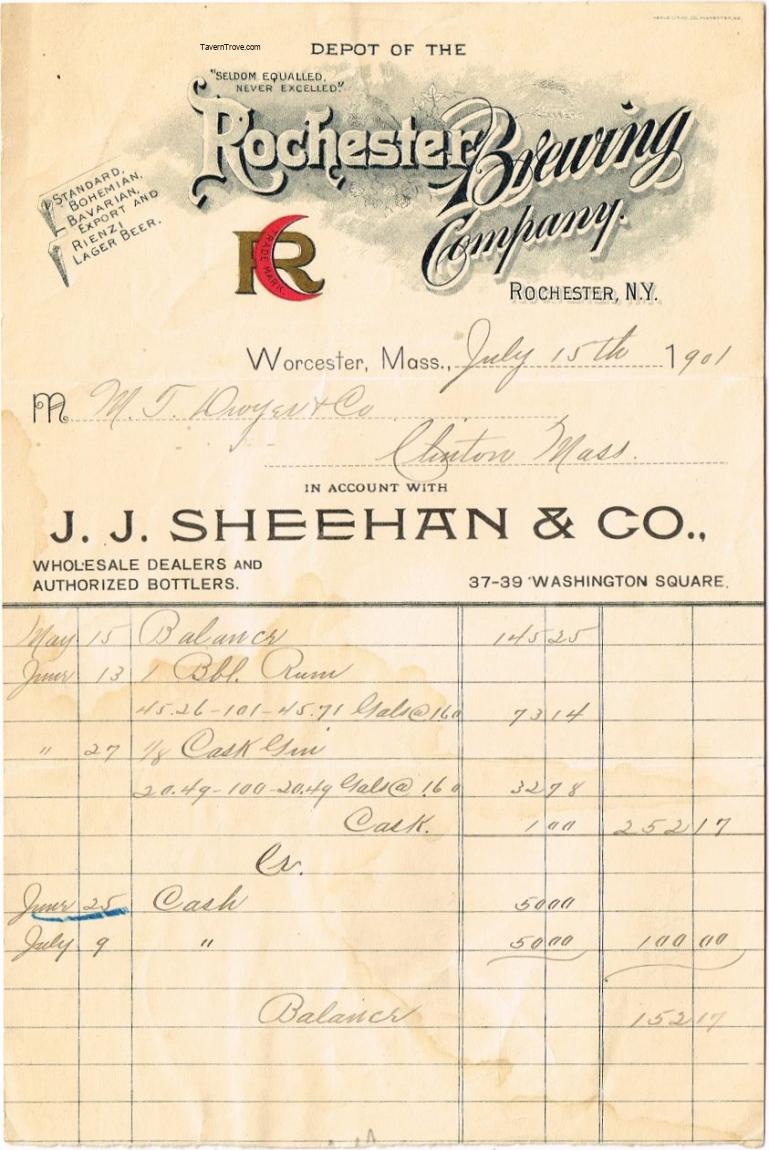 TavernTrove.com
DEPOT OF THE
"SELDOM EQUALLED,
NEVER EXCELLED."
Rochester Brewing
Company.
STANDARD,
BOHEMIAN,
BAVARIAN,
EXPORT AND
RIENZI
LAGER BEER.
R
TRADE MARK.
ROCHESTER, N.Y.
Worcester, Mass., July 15th 1901
M M. T. Dwyer & Co
Clinton Mass.
IN ACCOUNT WITH
J. J. SHEEHAN & CO.,
WHOLESALE DEALERS AND
AUTHORIZED BOTTLERS.
37-39 WASHINGTON SQUARE.
May 15 Balance 145 25
June 13 1 Bbl. Rum
45.26-101-45.71 Gals @ 1 60 73 14
" 27 1/8 Cask Gin
20.49-100-20.49 Gals @ 1.60 32 78
Cask. 1 00 252 17
Cr.
June 25 Cash 50 00
July 9 " 50 00 100 00
Balance 152 17